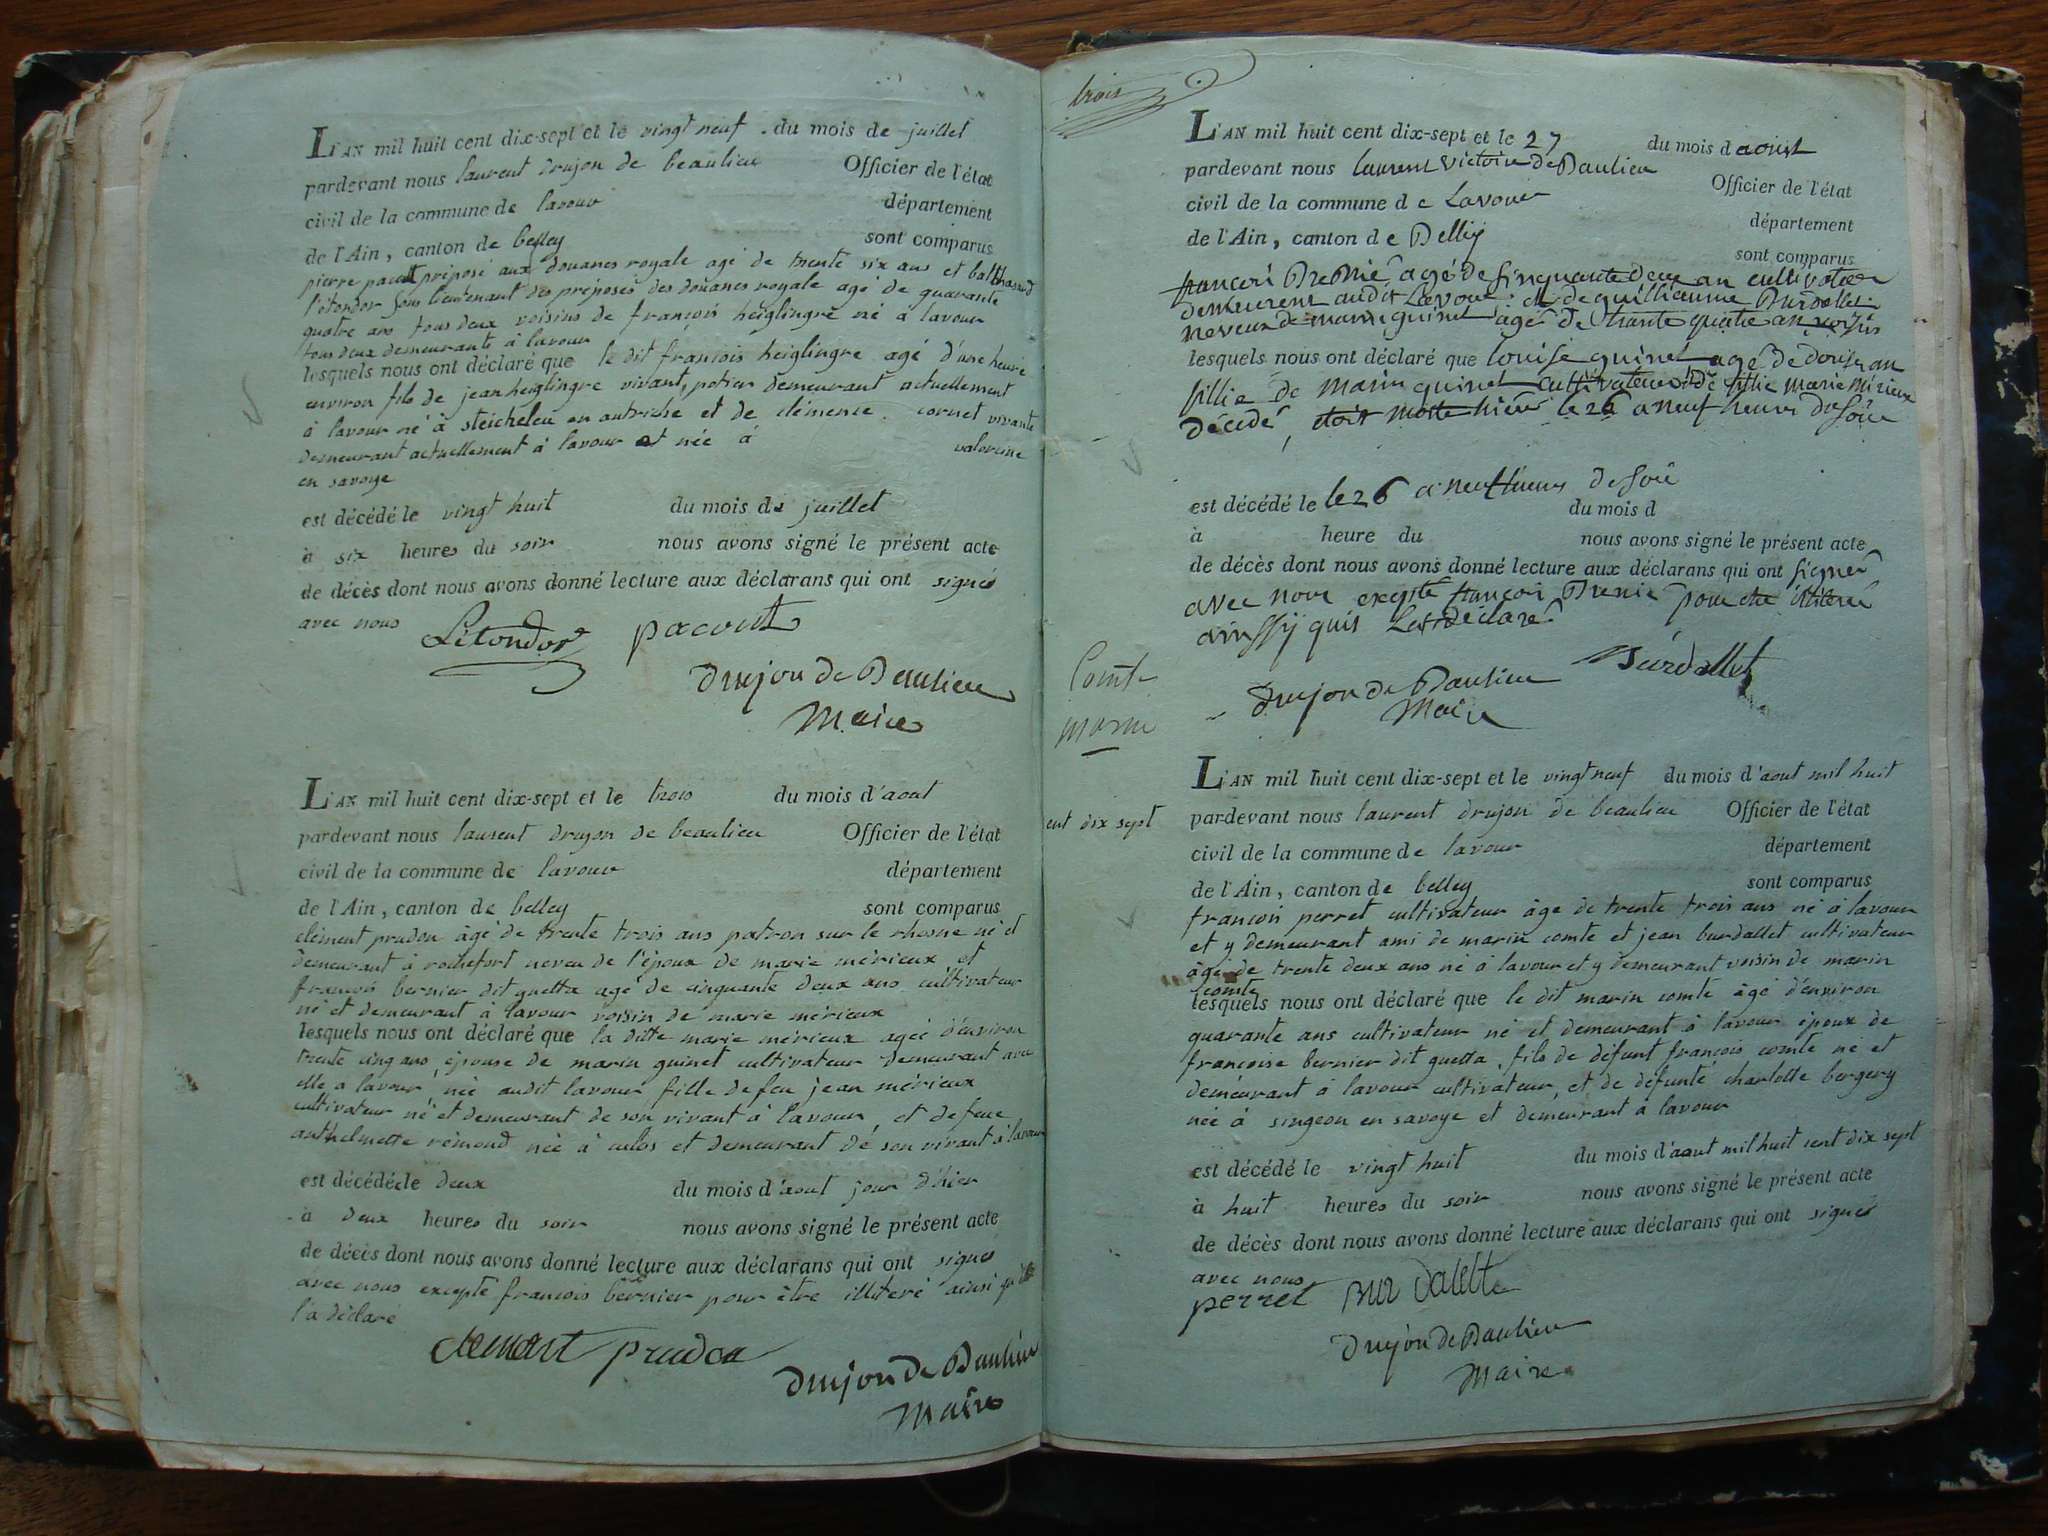 L'AN mil huit cent dix-sept et le vingt neuf du mois de juillet
pardevant nous laurent drujon de beaulieu Officier de l'état
civil de la commune de lavour département
de l'Ain, canton de belley sont comparus
pierre pacott préposé aux douanes royale agé de trente six ans et balthazard
l'étondor sous lieutenant des préposés des douanes royale agé de quarante
quatre ans tous deux voisins de françois heiglingre né à lavour
tous deux demeurants à lavour
lesquels nous ont déclaré que le dit françois heiglingre agé d'une heure
environ fils de jean heiglingre vivant, potier demeurant actuellement
à lavour né à steichelen en autriche et de clémence cornet vivante
demeurant actuellement à lavour et née à valorcine
en savoye
est décédé le vingt huit du mois de juillet
à six heures du soir nous avons signé le présent acte
de décès dont nous avons donné lecture aux déclarans qui ont signés
avec nous
Létondor pacout
Drujon de Beaulieu
Maire
L'AN mil huit cent dix-sept et le trois du mois d'aout
pardevant nous laurent drujon de beaulieu Officier de l'état
civil de la commune de lavour département
de l'Ain, canton de belley sont comparus
clément prudon âgé de trente trois ans patron sur le rhosne né et
demeurant à rochefort neveu de l'époux de marie mérieux et
françois bernier dit guetta agé de cinquante deux ans cultivateur
né et demeurant à lavour voisin de marie mérieux
lesquels nous ont déclaré que la ditte marie mérieux agée d'environ
trente cinq ans, épouse de marin guinet cultivateur demeurant avec
elle a lavour, née audit lavour fille de feu jean mérieux
cultivateur né et demeurant de son vivant à lavour, et de feue
anthelmette rémond née à culos et demeurant de son vivant à lavour
est décédée le deux du mois d'aout jour d'hier
à deux heures du soir nous avons signé le présent acte
de décès dont nous avons donné lecture aux déclarans qui ont signés
avec nous excepté françois bernier pour être illiteré ainsi qu'il
l'a déclaré
clemant prudon
Drujon de Beaulieu
Maire
trois
L'AN mil huit cent dix-sept et le 27 du mois d aoust
pardevant nous laurent victoire de Baulieu Officier de l'état
civil de la commune de Lavour département
de l'Ain, canton de Belley sont comparus
françoi Bremié agé de sinquante deux an cultivateur
demeurent audit Lavour et de guilliaume Burdallet
neveux de marin guinet agé de trante quatre an voisin
lesquels nous ont déclaré que louise guinet agé de douse an
fillie de marin guinet cultivateur et de fillie marie mérieux
décédé, étoit morte hièr le 26 a neuf heures du soire
est décédé le le 26 a neuf hieurs de soir
du mois d
à heure du nous avons signé le présent acte
de décès dont nous avons donné lecture aux déclarans qui ont signer
avec nour excepté françoi Brenié pour etre illiteré
ainssÿ quis Lat déclaré
Burdallet
Drujon de Baulieu
Maire
Comte
marin
L'AN mil huit cent dix-sept et le vingt neuf du mois d'aout mil huit
ent dix sept
pardevant nous laurent drujon de beaulieu Officier de l'état
civil de la commune de lavour département
de l'Ain, canton de belley sont comparus
françois perret cultivateur âge de trente trois ans né à lavour
et y demeurant ami de marin comte et jean burdallet cultivateur
âgé de trente deux ans né à lavour et y demeurant voisin de marin
comte
lesquels nous ont déclaré que le dit marin comte âgé d'environ
quarante ans cultivateur né et demeurant à lavour époux de
françoise bernier dit guetta, fils de défunt françois comte né et
demeurant à lavour cultivateur, et de défunte charlotte bergery
née à singeon en savoye et demeurant à lavour
est décédé le vingt huit du mois d'aout mil huit cent dix sept
à huit heures du soir nous avons signé le présent acte
de décès dont nous avons donné lecture aux déclarans qui ont signés
avec nous
perret Bur dalette
Drujon de Baulieu
Maire